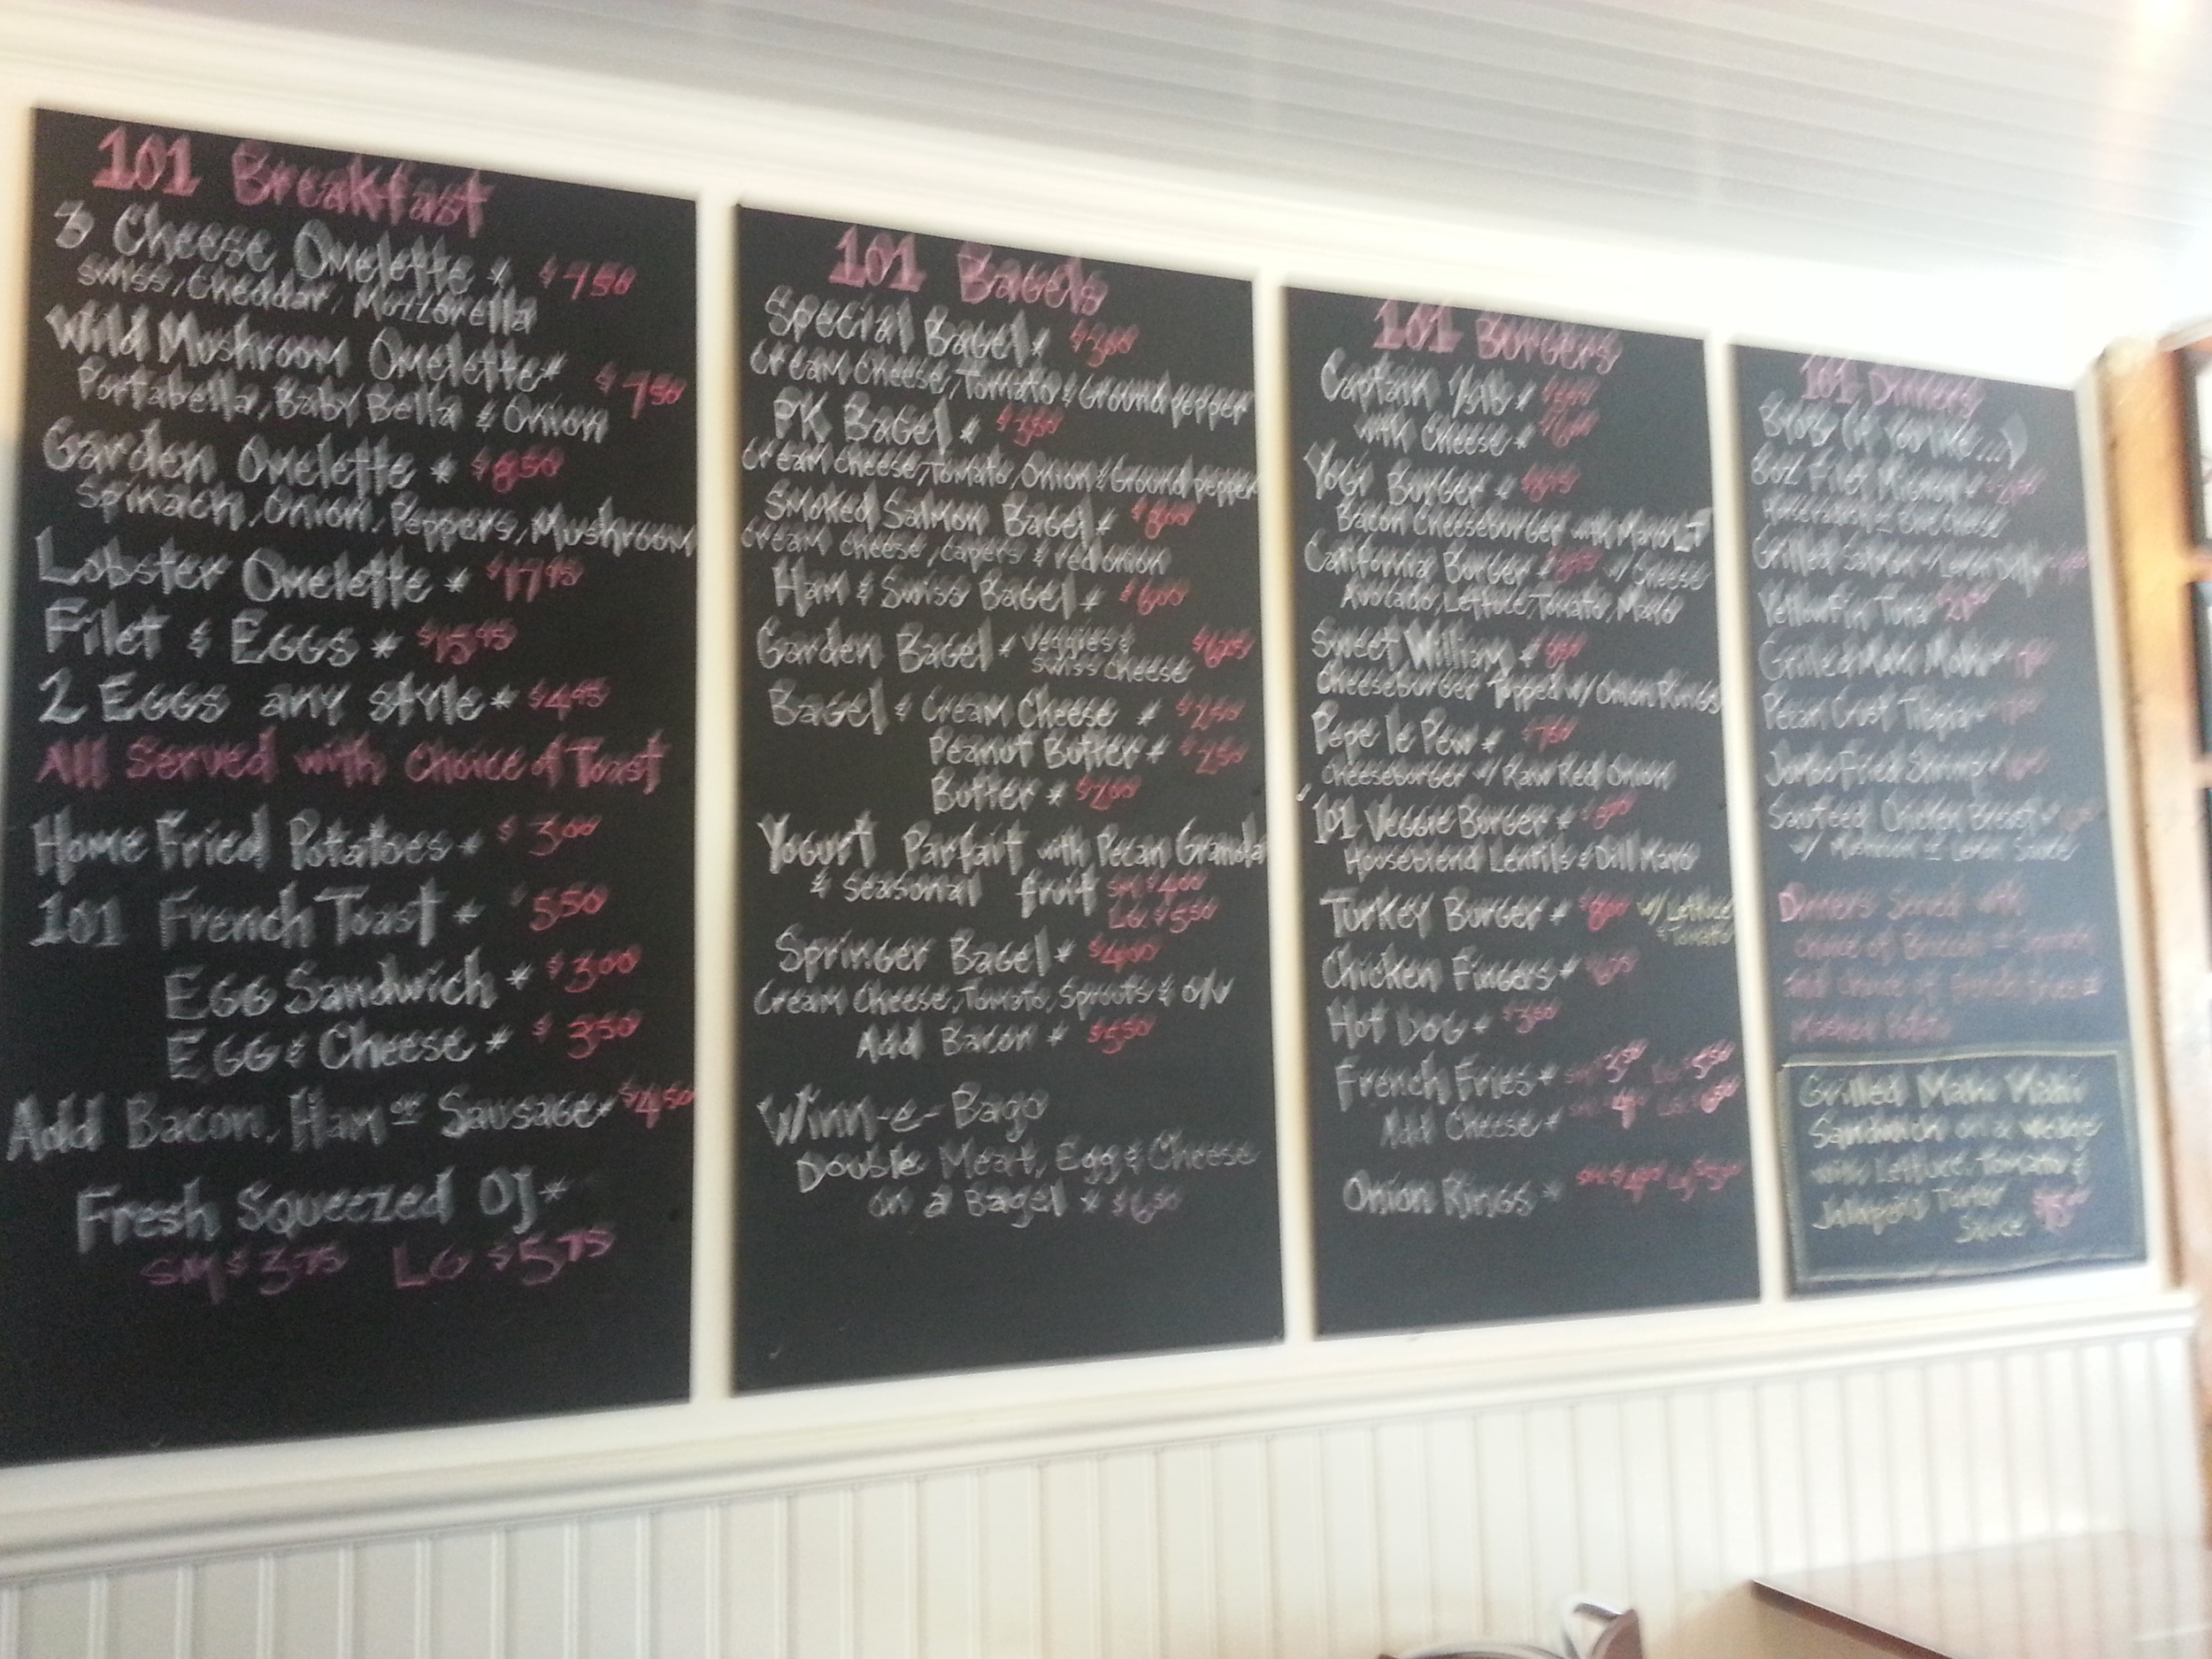 101 Breakfast
3 Cheese Omelette * $7.50
Swiss, Cheddar, Mozzarella
Wild Mushroom Omelette *
$7.50
Portabella, Baby Bella & Onion
Garden Omelette * $8.50
Spinach, Onion, Peppers, Mushroom
Lobster Omelette * $17.95
Filet & Eggs * $15.95
2 Eggs any style * $4.95
All Served with Choice of Toast
Home Fried Potatoes * $3.00
101 French Toast * $5.50
Egg Sandwich * $3.00
Egg & Cheese * $3.50
Add Bacon, Ham or Sausage * $4.50
Fresh Squeezed OJ *
SM $3.75 LG $5.75
101 Bagels
Special Bagel * $3.00
Cream Cheese, Tomato & Ground pepper
PK Bagel * $3.50
Cream Cheese, Tomato, Onion & Ground pepper
Smoked Salmon Bagel * $8.00
Cream Cheese, Capers & red onion
Ham & Swiss Bagel * $6.00
Garden Bagel * Veggies & $6.25
Swiss Cheese
Bagel & Cream Cheese * $2.50
Peanut Butter * $2.50
Butter * $2.00
Yogurt Parfait with Pecan Granola
& Seasonal fruit SM $4.00
LG $5.50
Springer Bagel * $4.00
Cream Cheese, Tomato, Sprouts & O/V
Add Bacon * $5.50
Winn-e-Bago
Double Meat, Egg & Cheese
on a Bagel * $6.00
101 Burgers
Captain *
with Cheese *
Yogi Burger *
Bacon Cheeseburger with Mayo LT
California Burger * w/ Cheese
Avocado, Lettuce, Tomato, Mayo
Sweet William *
Cheeseburger Topped w/ Onion Rings
Pepe le Pew * $7.50
Cheeseburger w/ Raw Red Onion
101 Veggie Burger *
Houseblend Lentils & Dill Mayo
Turkey Burger * $8.00 w/ Lettuce
& Tomato
Chicken Fingers *
Hot Dog * $3.50
French Fries * SM 3.50 LG 5.50
Add Cheese *
Onion Rings * SM $4.00 LG $5.00
101 Dinners
BYOB (if you like...)
8oz Filet Mignon *
Grilled Salmon w/ Lemon Dill *
Yellowfin Tuna
Grilled Mahi Mahi *
Pecan Crust Tilapia *
Jumbo Fried Shrimp *
Sauteed Chicken Breast *
w/ Mushroom or Lemon Sauce
Dinners Served with
Choice of Broccoli or
and choice of or
Mashed Potato
Grilled Mahi Mahi
Sandwich on a wedge
with Lettuce, Tomato &
Jalapeño Tarter
Sauce